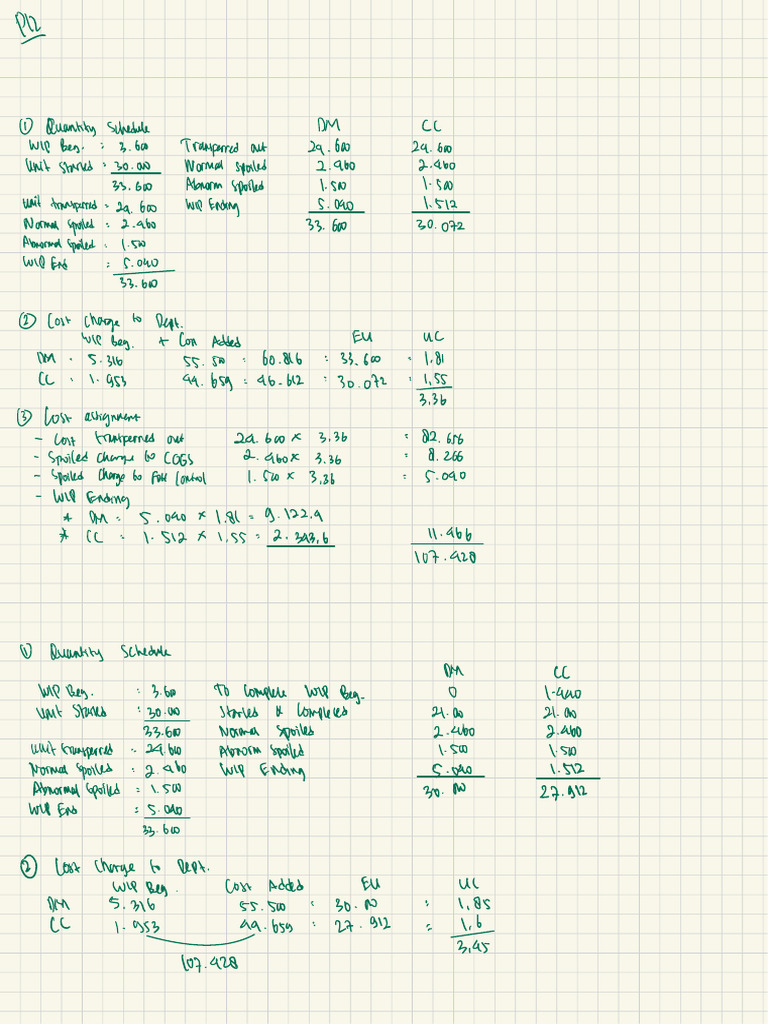 P12
① Quantity Schedule DM CC
WIP Beg. : 3.600 Transferred out 24.600 24.600
Unit Started : 30.000 Normal Spoiled 2.460 2.460
33.600 Abnorm Spoiled 1.500 1.500
Unit transferred = 24.600 WIP Ending 5.040 1.512
Normal Spoiled : 2.460 33.600 30.072
Abnormal Spoiled : 1.500
WIP End : 5.040
33.600
② Cost Charge to Dept.
WIP Beg. + Con Added EU UC
DM : 5.316 55.500 = 60.816 : 33.600 = 1,81
CC : 1.953 44.659 = 46.612 : 30.072 = 1,55
3,36
③ Cost assignment
- Cost transferred out 24.600 × 3,36 = 82.656
- Spoiled Charge to COGS 2.460 × 3,36 = 8.266
- Spoiled Charge to FOH Control 1.500 × 3,36 = 5.040
- WIP Ending
* DM = 5.040 × 1.81 = 9.122.4
* CC = 1.512 × 1,55 = 2.343,6 11.466
107.428
① Quantity Schedule
DM CC
WIP Beg. : 3.600 To Complete WIP Beg. 0 1.440
Unit Started : 30.000 Started & Completed 21.000 21.000
33.600 Normal Spoiled 2.460 2.460
Unit transferred = 24.600 Abnorm Spoiled 1.500 1.500
Normal Spoiled : 2.460 WIP Ending 5.040 1.512
Abnormal Spoiled = 1.500 30.000 27.912
WIP End : 5.040
33.600
② Cost Charge to Dept.
WIP Beg. Cost Added EU UC
DM 5.316 55.500 : 30.000 = 1,85
CC 1.953 44.659 : 27.912 = 1,6
3,45
107.428